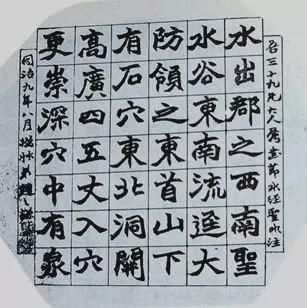 三十九兄大人屬書節水經聖水注
水出郡之西南聖
水谷東南流逕大
防領之東首山下
有石穴東北洞開
高廣四五丈入穴
更崇深穴中有泉
同治九年八月撝叔弟趙之謙